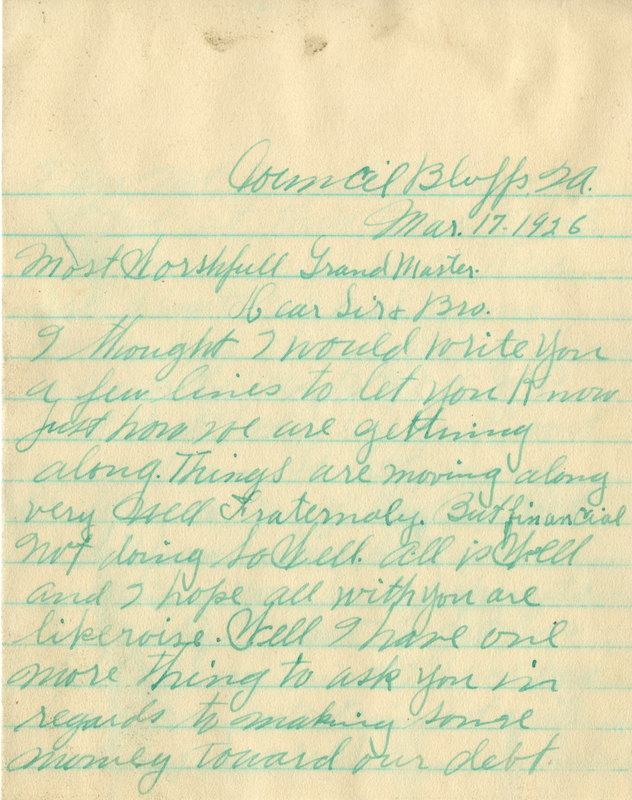 Council Bluffs, Ia.
Mar. 17. 1926
Most Worshfull Grand Master.
Dear Sir & Bro.
I thought I would write you
a few lines to let you know
just how we are gettning
along. Things are moving along
very well Fraternaly. But financial
not doing so well. all is well
and I hope all with you are
likewise. Well I have one
more thing to ask you in
regards to making some
money toward our debt.